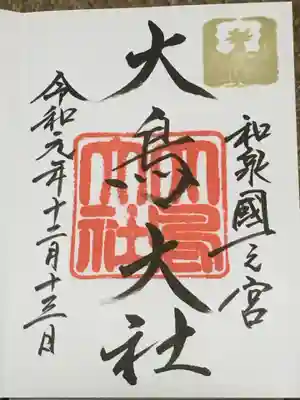 和泉國一之宮
大鳥大社
大鳥
大社
令和元年十二月十三日